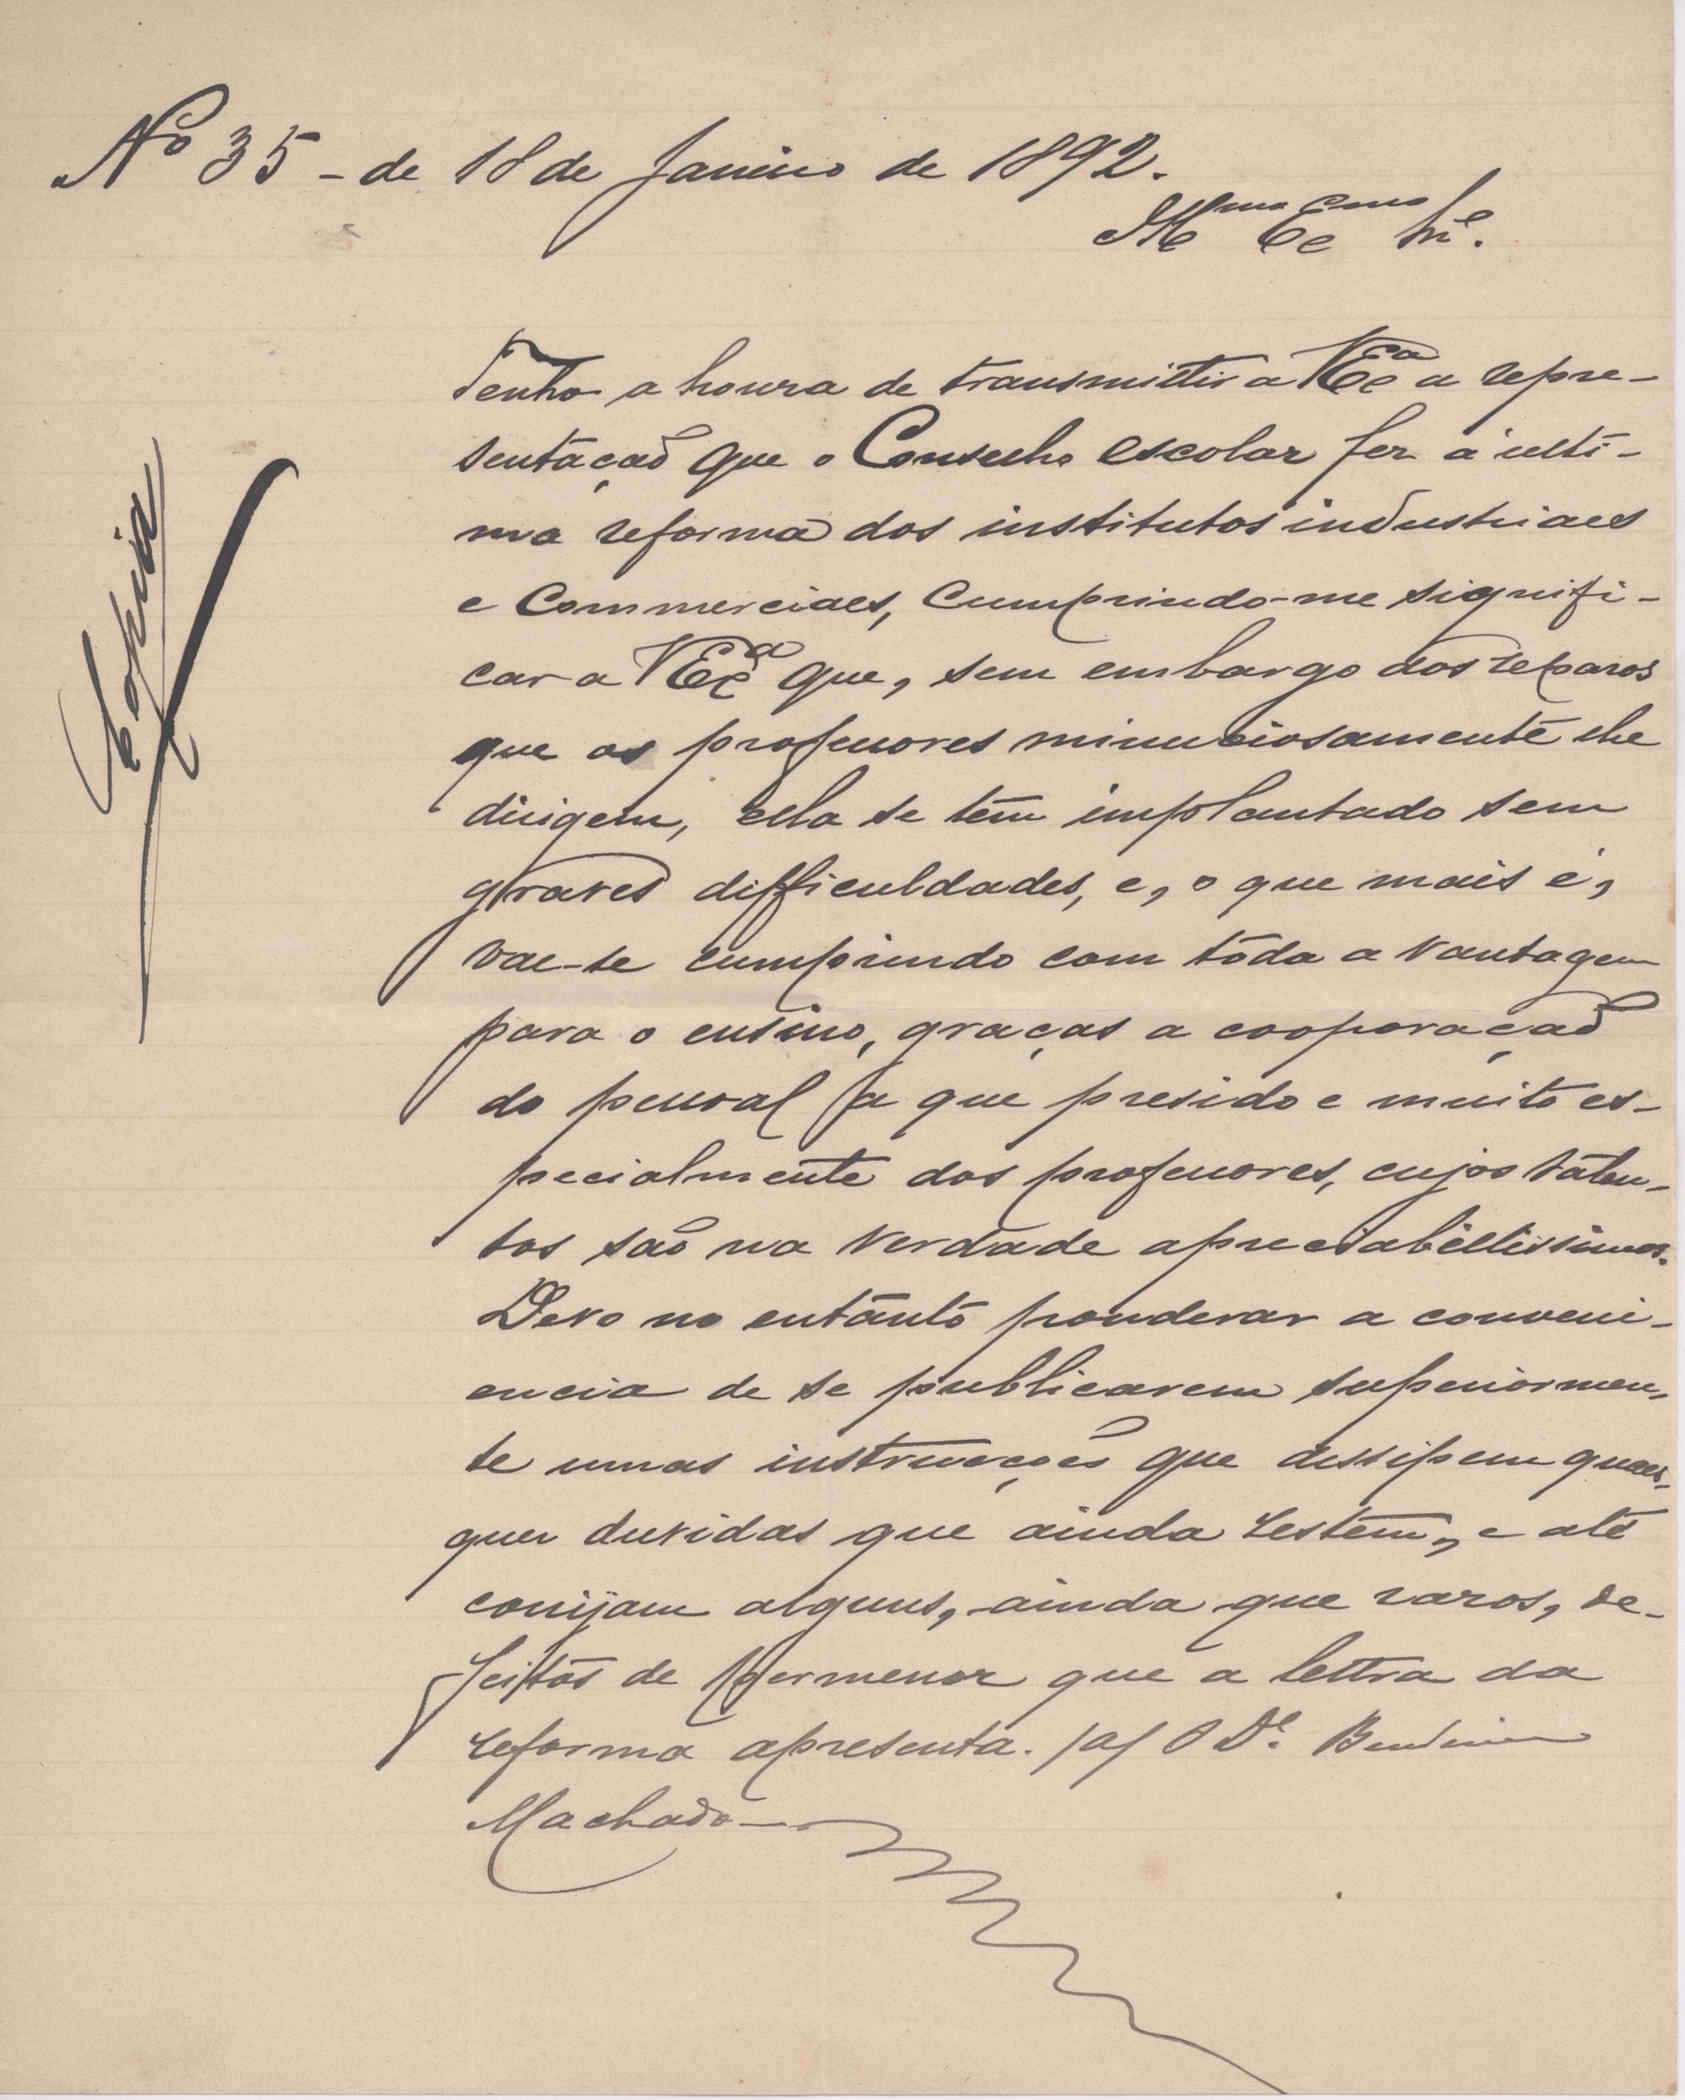 Nº 35 - de 18 de Janeiro de 1892.
Illmo Exmo Snr.
Copia
Tenho a honra de transmittir a VExª a repre-
sentação que o Conselho escolar fez á ulti-
ma reforma dos institutos industriaes
e Commerciaes, Cumprindo-me signifi-
car a VExª que, sem embargo dos reparos
que os professores minuciosamente lhe
dirigem, ella se tem implantado sem
graves difficuldades, e, o que mais é,
vae-se cumprindo com tôda a vantagem
para o ensino, graças a cooporação
do pessoal a que presido e muito es-
pecialmente dos professores, cujos talen-
tos são na verdade apreciabillissimos.
Devo no entanto ponderar a conveni-
encia de se publicarem superiormen-
te umas instrucções que dissipem quaes-
quer duvidas que ainda restem, e até
corrijam alguns, ainda que raros, de-
feitos de permenor que a lettra da
reforma apresenta. /a/ O Dr. Bernardino
Machado